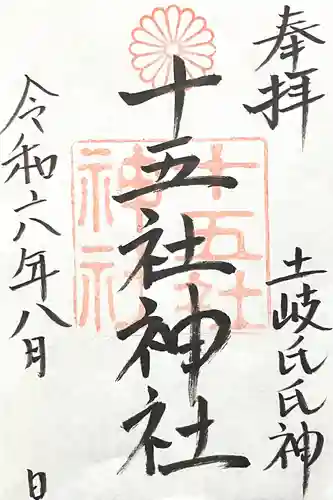 奉拝
土岐氏氏神
十五社神社
十五社
神社
令和六八年八月
日